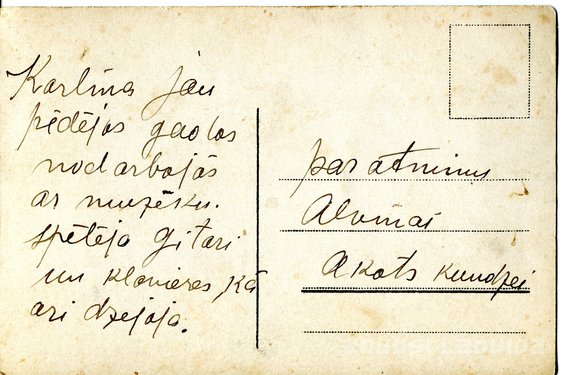 Karlīna jau
pēdējos gados
nodarbojās
ar muzēku.
spēlēja gitari
un klavieres, kā
ari dzejoja.
par atminu
Alvīnai
Akots kundzei